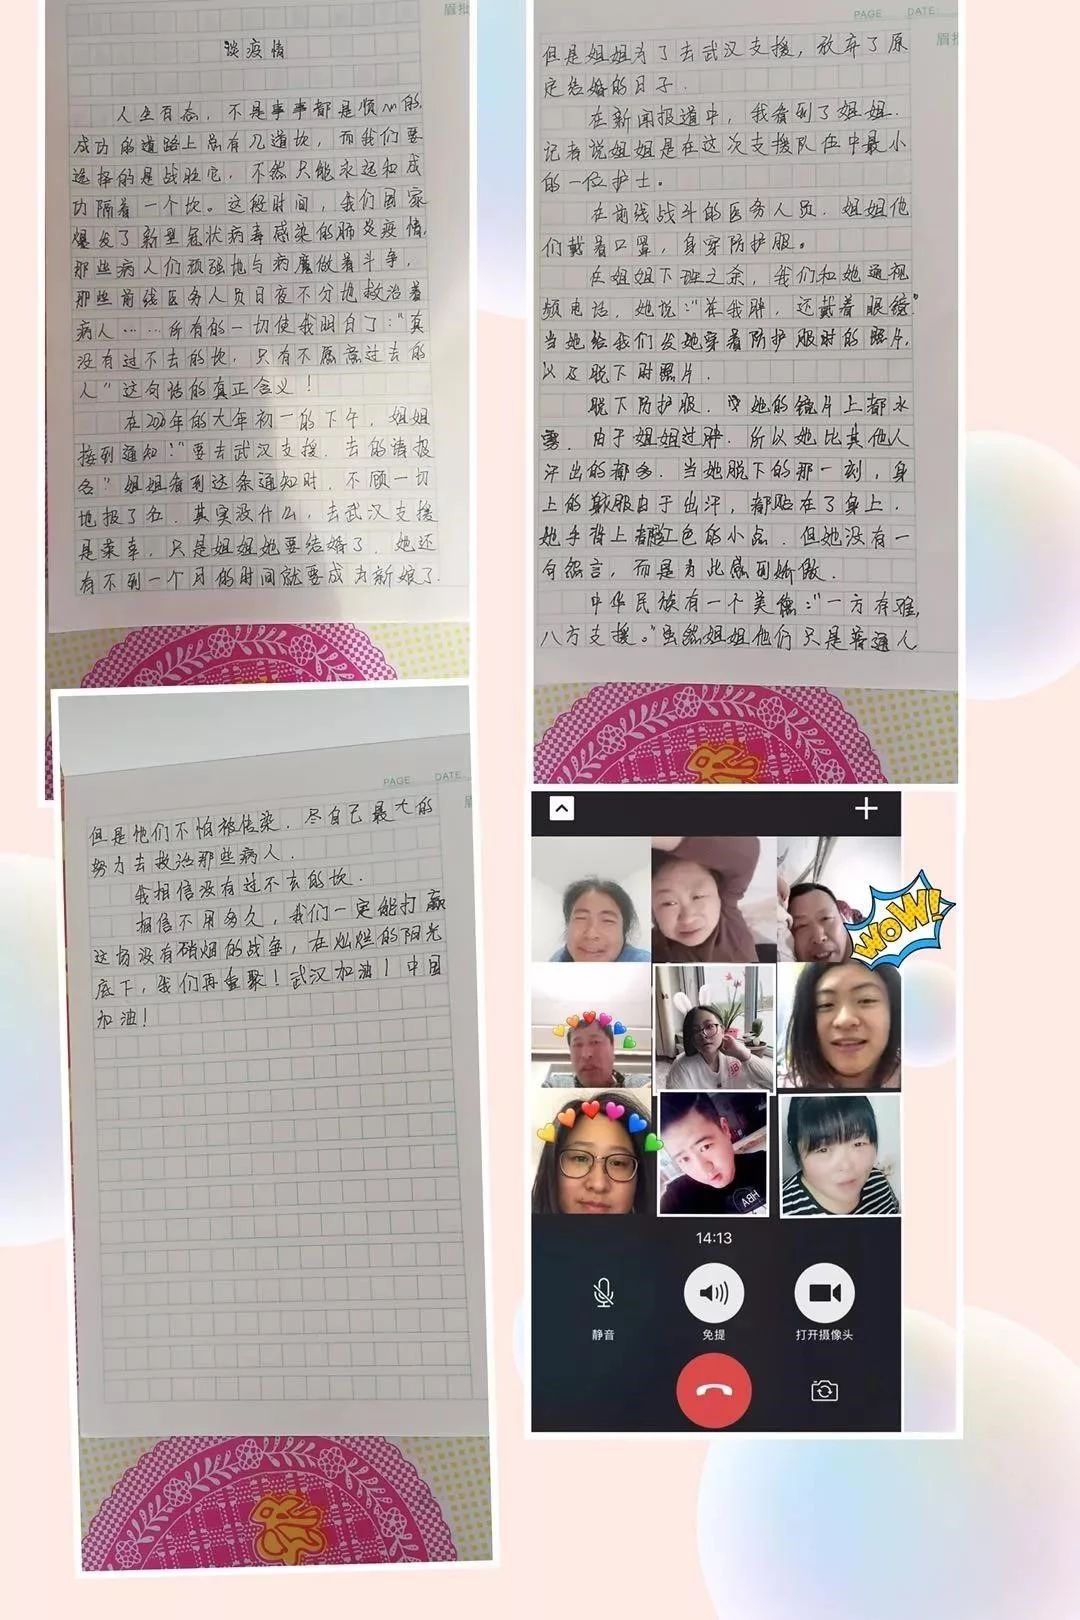 眉批
谈疫情
人生百态，不是事事都是顺心的，
成功的道路上总有几道坎，而我们要
选择的是战胜它，不然只能永远和成
功隔着一个坎。这段时间，我们国家
爆发了新型冠状病毒感染的肺炎疫情，
那些病人们顽强地与病魔做着斗争，
那些前线医务人员日夜不分地救治着
病人……所有的一切使我明白了：“真
没有过不去的坎，只有不愿意过去的
人”这句话的真正含义！
在2020年的大年初一的下午，姐姐
接到通知：“要去武汉支援，去的请报
名”姐姐看到这条通知时，不顾一切
地报了名．其实没什么，去武汉支援
是荣幸，只是姐姐她要结婚了．她还
有不到一个月的时间就要成为新娘了．
PAGE DATE:
眉批
但是姐姐为了去武汉支援，放弃了原
定结婚的日子．
在新闻报道中，我看到了姐姐．
记者说姐姐是在这次支援队伍中最小
的一位护士。
在前线战斗的医务人员．姐姐他
们戴着口罩，身穿防护服。
在姐姐下班之余，我们和她通视
频电话，她说：“在我胖，还戴着眼镜”
当她给我们发她穿着防护服时的照片，
以及脱下时照片．
脱下防护服．她的镜片上都水
雾．由于姐姐过胖．所以她比其他人
汗出的都多．当她脱下的那一刻，身
上的衣服由于出汗，都贴在了身上．
她手背上都红色的小点．但她没有一
句怨言，而是为此感到骄傲．
中华民族有一个美德：“一方有难，
八方支援。”虽然姐姐他们只是普通人
PAGE DATE:
但是他们不怕被传染．尽自己最大的
努力去救治那些病人．
我相信没有过不去的坎．
相信不用多久，我们一定能打赢
这场没有硝烟的战争，在灿烂的阳光
底下，我们再重聚！武汉加油！中国
加油！
WOW!
HBA
14:13
静音 免提 打开摄像头